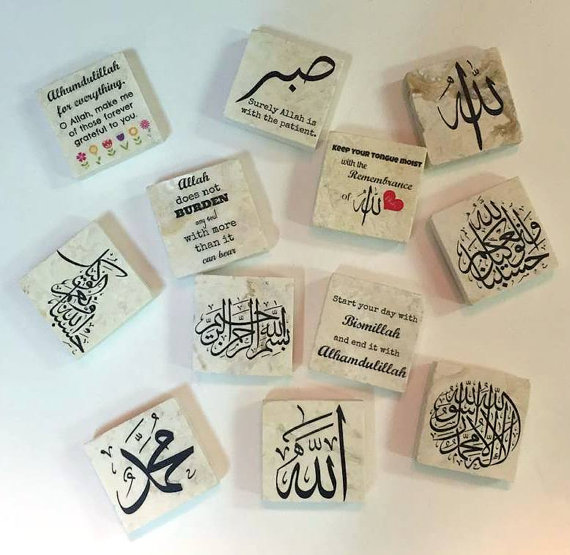 Alhumdulillah
for everything.
O Allah, make me
of those forever
grateful to you.
صبر
Surely Allah is
with the patient.
الله
Allah
does not
BURDEN
any soul
with more
than it
can bear
KEEP YOUR TONGUE MOIST
with the
Remembrance
of الله
حسبنا الله ونعم الوكيل
بسم الله الرحمن الرحيم
Start your day with
Bismillah
and end it with
Alhamdulillah
محمد
الله
لا اله الا الله محمد رسول الله